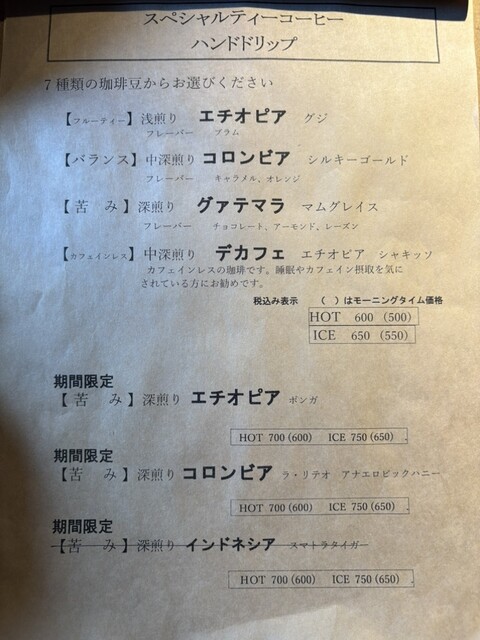 スペシャルティーコーヒー
ハンドドリップ
7種類の珈琲豆からお選びください
【フルーティー】浅煎り エチオピア グジ
フレーバー プラム
【バランス】中深煎り コロンビア シルキーゴールド
フレーバー キャラメル、オレンジ
【苦み】深煎り グァテマラ マムグレイス
フレーバー チョコレート、アーモンド、レーズン
【カフェインレス】中深煎り デカフェ エチオピア シャキッソ
カフェインレスの珈琲です。睡眠やカフェイン摂取を気に
されている方にお勧めです。
税込み表示 ( )はモーニングタイム価格
HOT 600 (500)
ICE 650 (550)
期間限定
【苦み】深煎り エチオピア ボンガ
HOT 700 (600) ICE 750 (650) .
期間限定
【苦み】深煎り コロンビア ラ・リテオ アナエロビックハニー
HOT 700 (600) ICE 750 (650) .
期間限定
【苦み】深煎り インドネシア スマトラタイガー
HOT 700 (600) ICE 750 (650) .